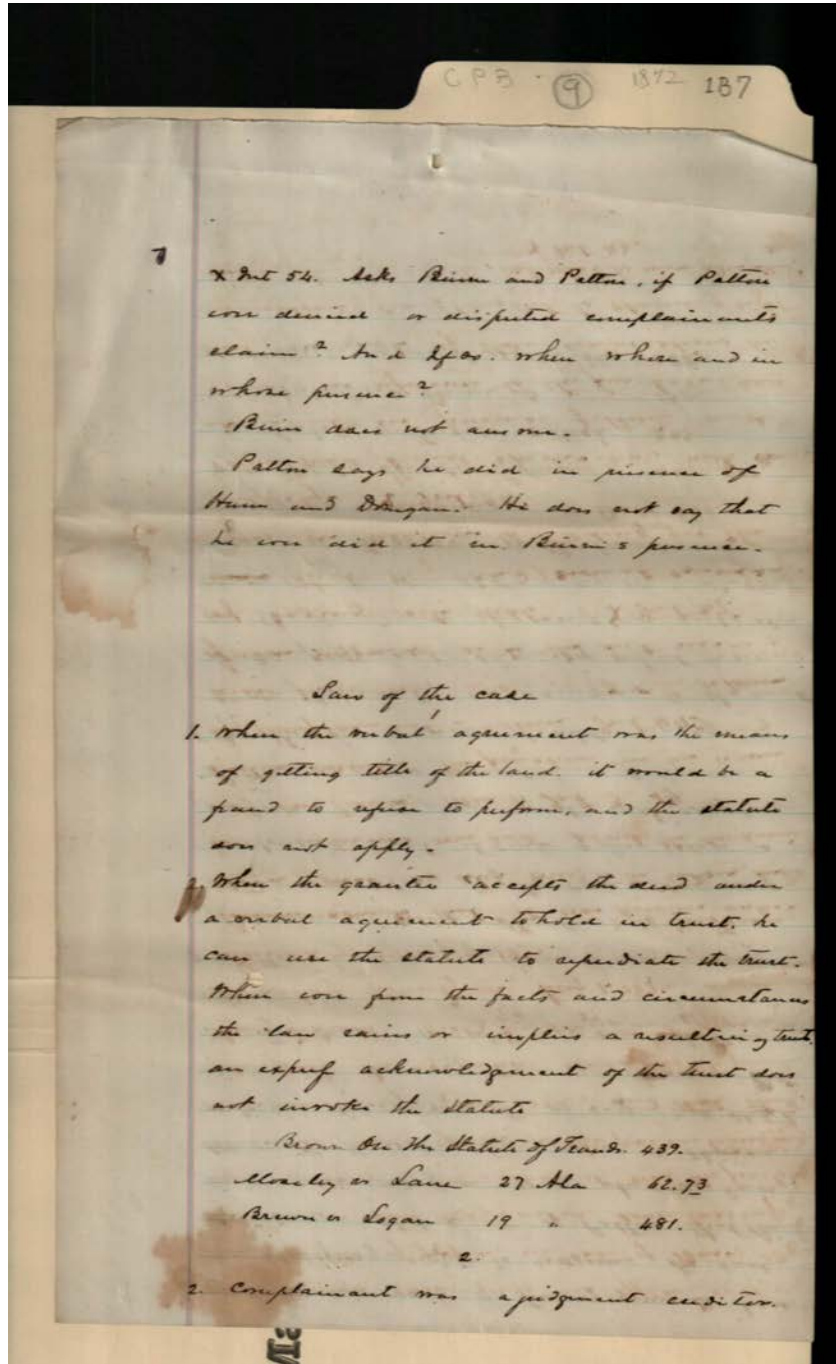 CPB - 9 1872 187
7
X Int 54. Asks Binin and Patton, if Patton
ever denied or disputed complainants
claim? And If so. when where and in
whose presence?
Binin does not answer.
Patton says he did in presence of
and Donegan. He does not say that
he ever did it in Binin's presence.
Law of the case
1
1. When the verbal agreement was the means
of getting title of the land. it would be a
fraud to refuse to perform, and the statute
does not apply.
2. When the grantee accepts the deed under
a verbal agreement to hold in trust, he
can use the statute to repudiate the trust.
When ever from the facts and circumstances
the law raises or implies a resulting trust,
an express acknowledgment of the trust does
not invoke the statute
Brown On the Statute of Frauds. 439.
Moseley vs Lane 27 Ala 62.73
Brown vs Logan 19 " 481.
2.
2. Complainant was a judgment creditor.